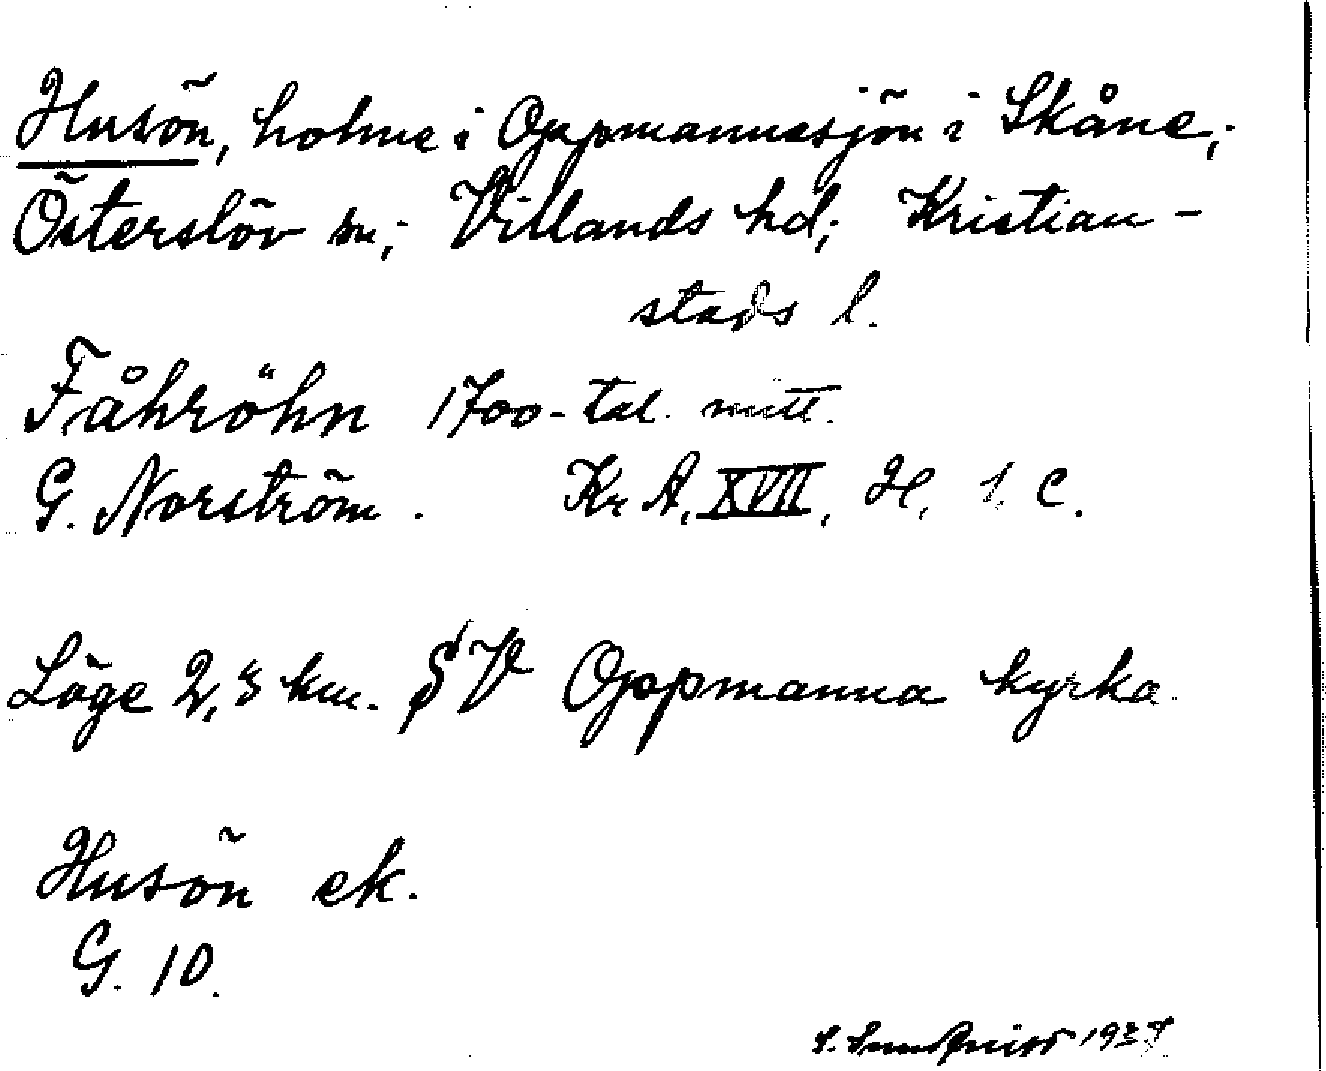 Husön, holme i Oppmannasjön i Skåne;
Österslöv sn; Villands hd; Kristian-
stads l.
Fåhröhn 1700-tal. mitt.
G. Norström. Kr A, XVII, H, 1. C.
Läge 2,3 km. SV Oppmanna kyrka.
Husön ek.
G. 10.
S. Sundqvist 1927